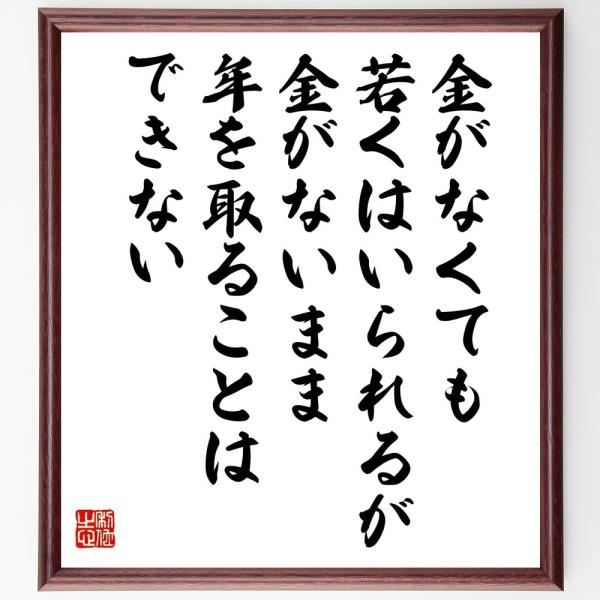 金がなくても
若くはいられるが
金がないまま
年を取ることは
できない